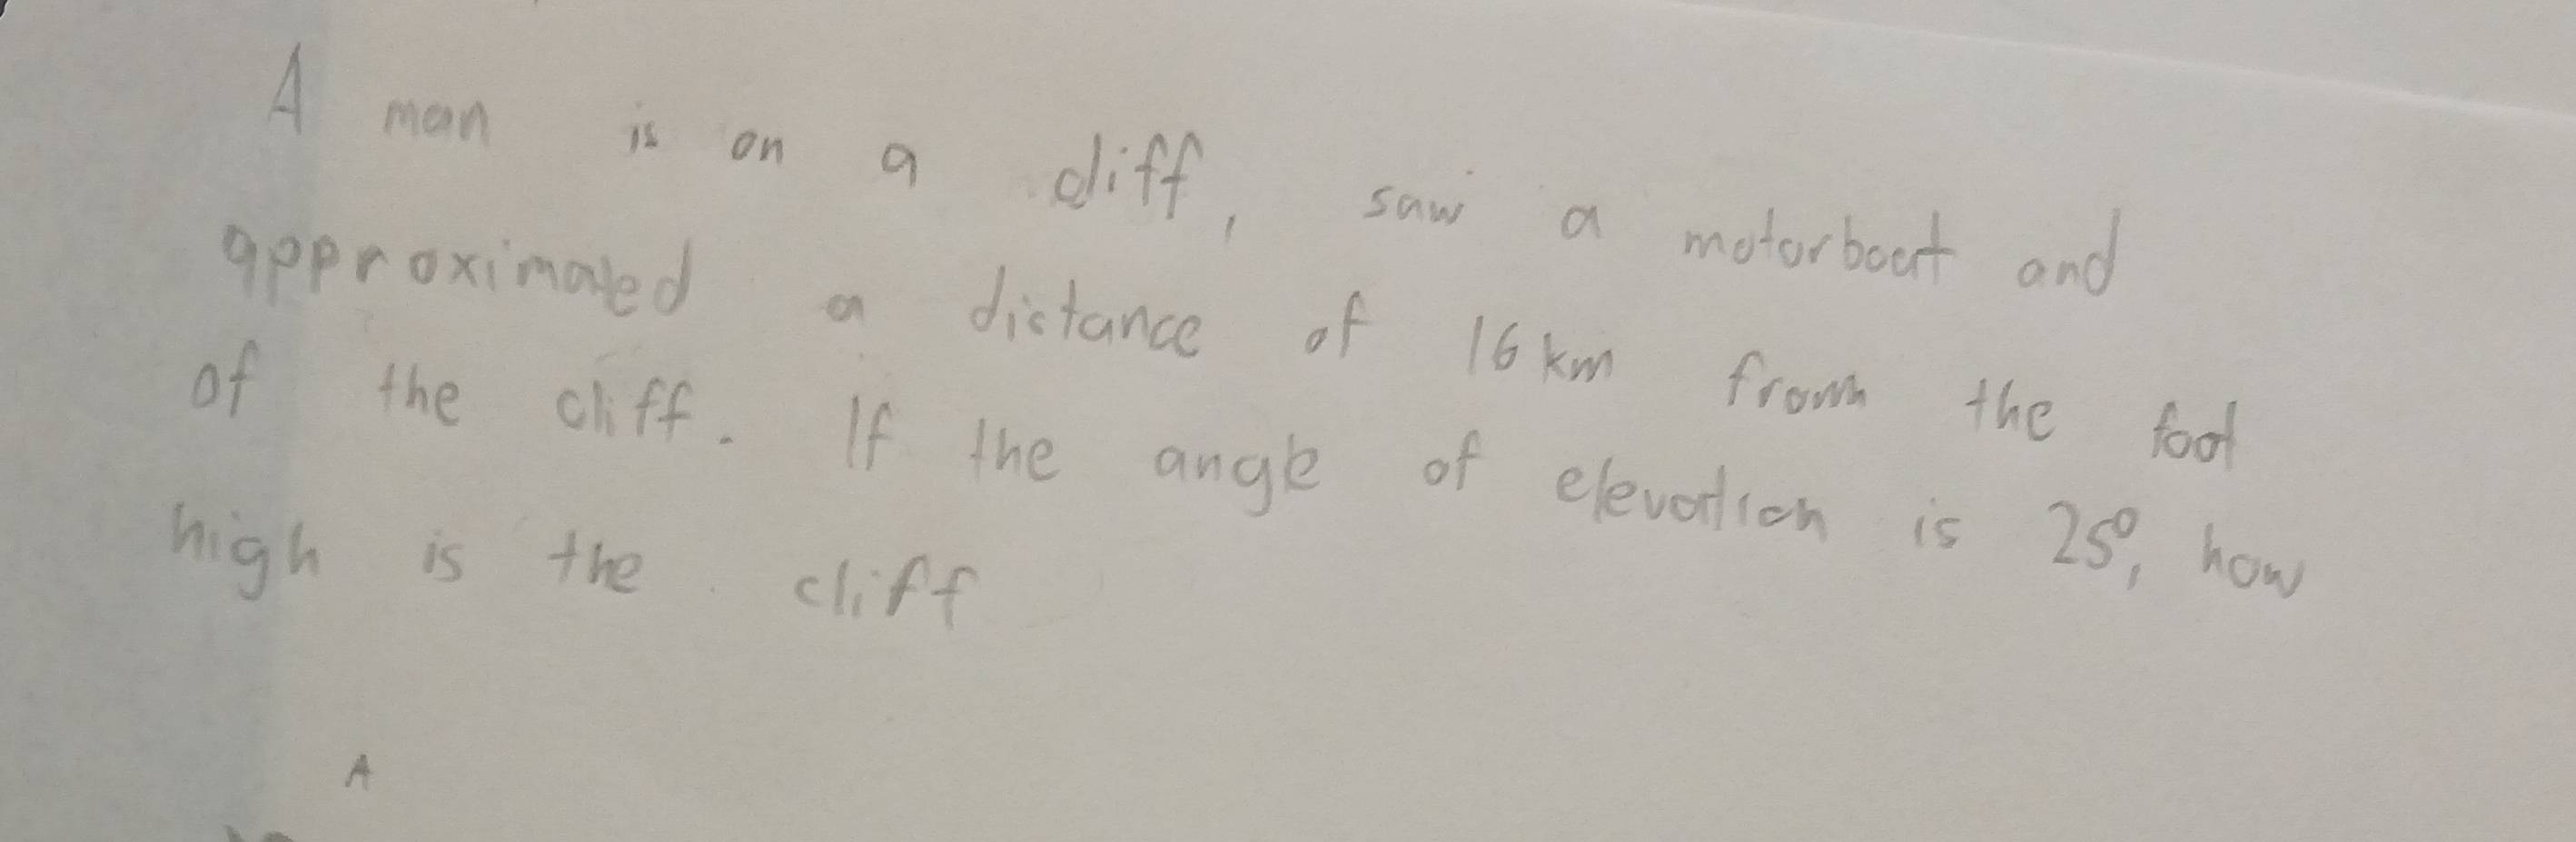 A man is on a cliff, saw a motorboat and
approximated a distance of 16 km from the foot
of the cliff. If the angle of elevation is 25°, how
high is the cliff
A